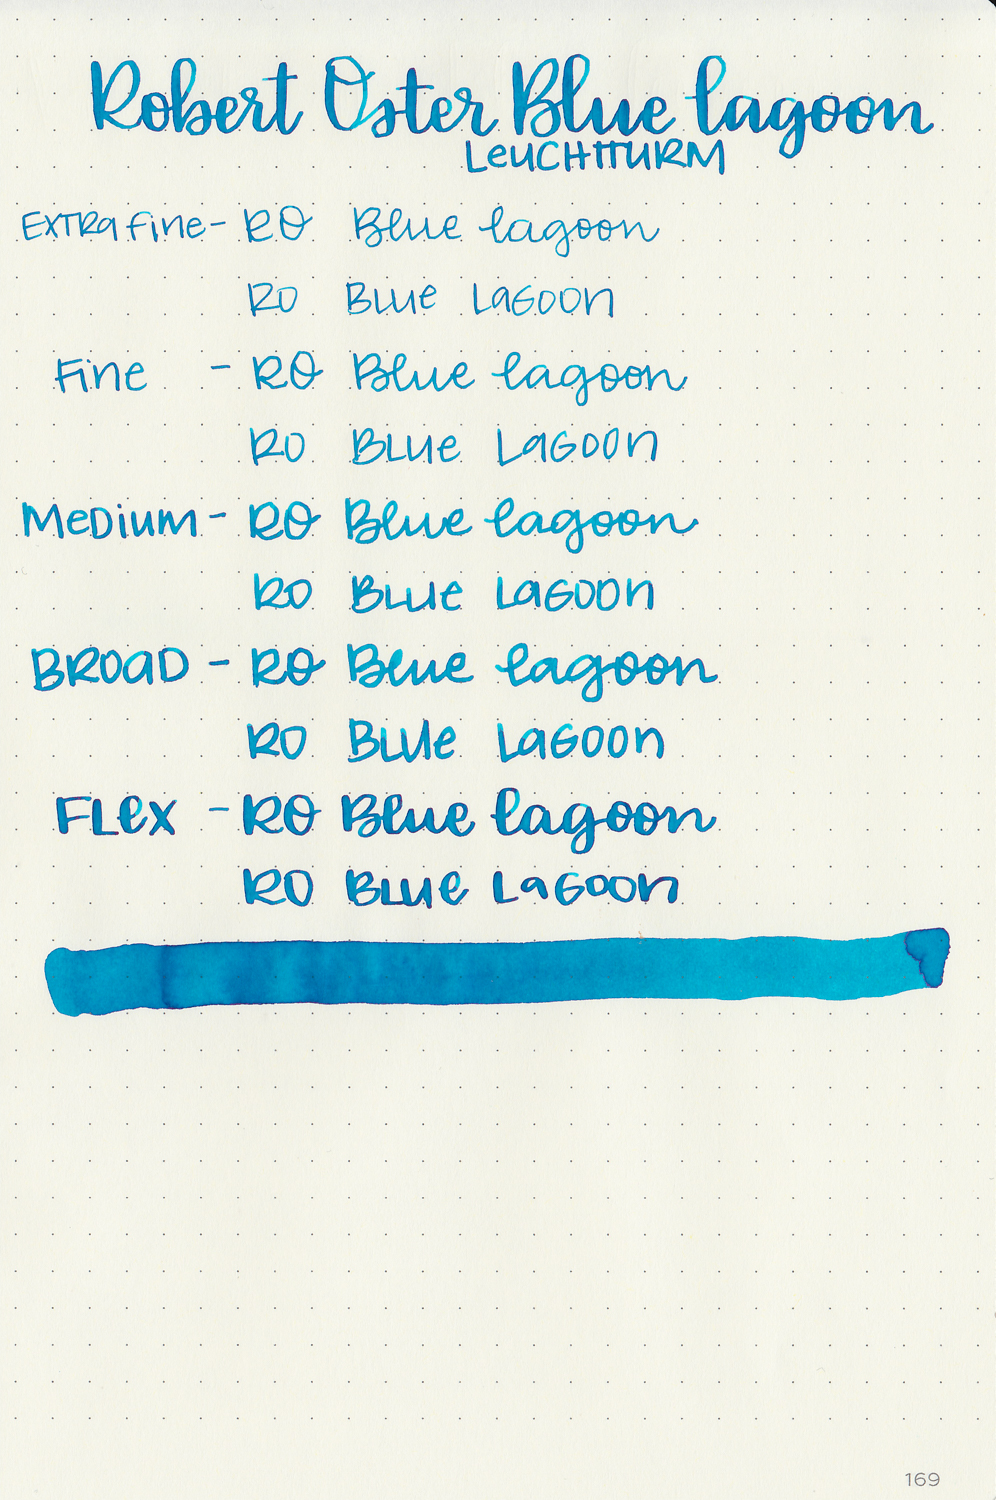 Robert Oster Blue lagoon
LeUCHTTURM
EXTRA fine - RO Blue lagoon
RO BLUe LaGOON
Fine - RO Blue lagoon
RO BLUe LaGOON
MeDium - RO Blue lagoon
RO BLUe LaGOON
BROaD - RO Blue lagoon
RO BLUe LaGOON
FLex - RO Blue lagoon
RO BLUe LaGOON
169